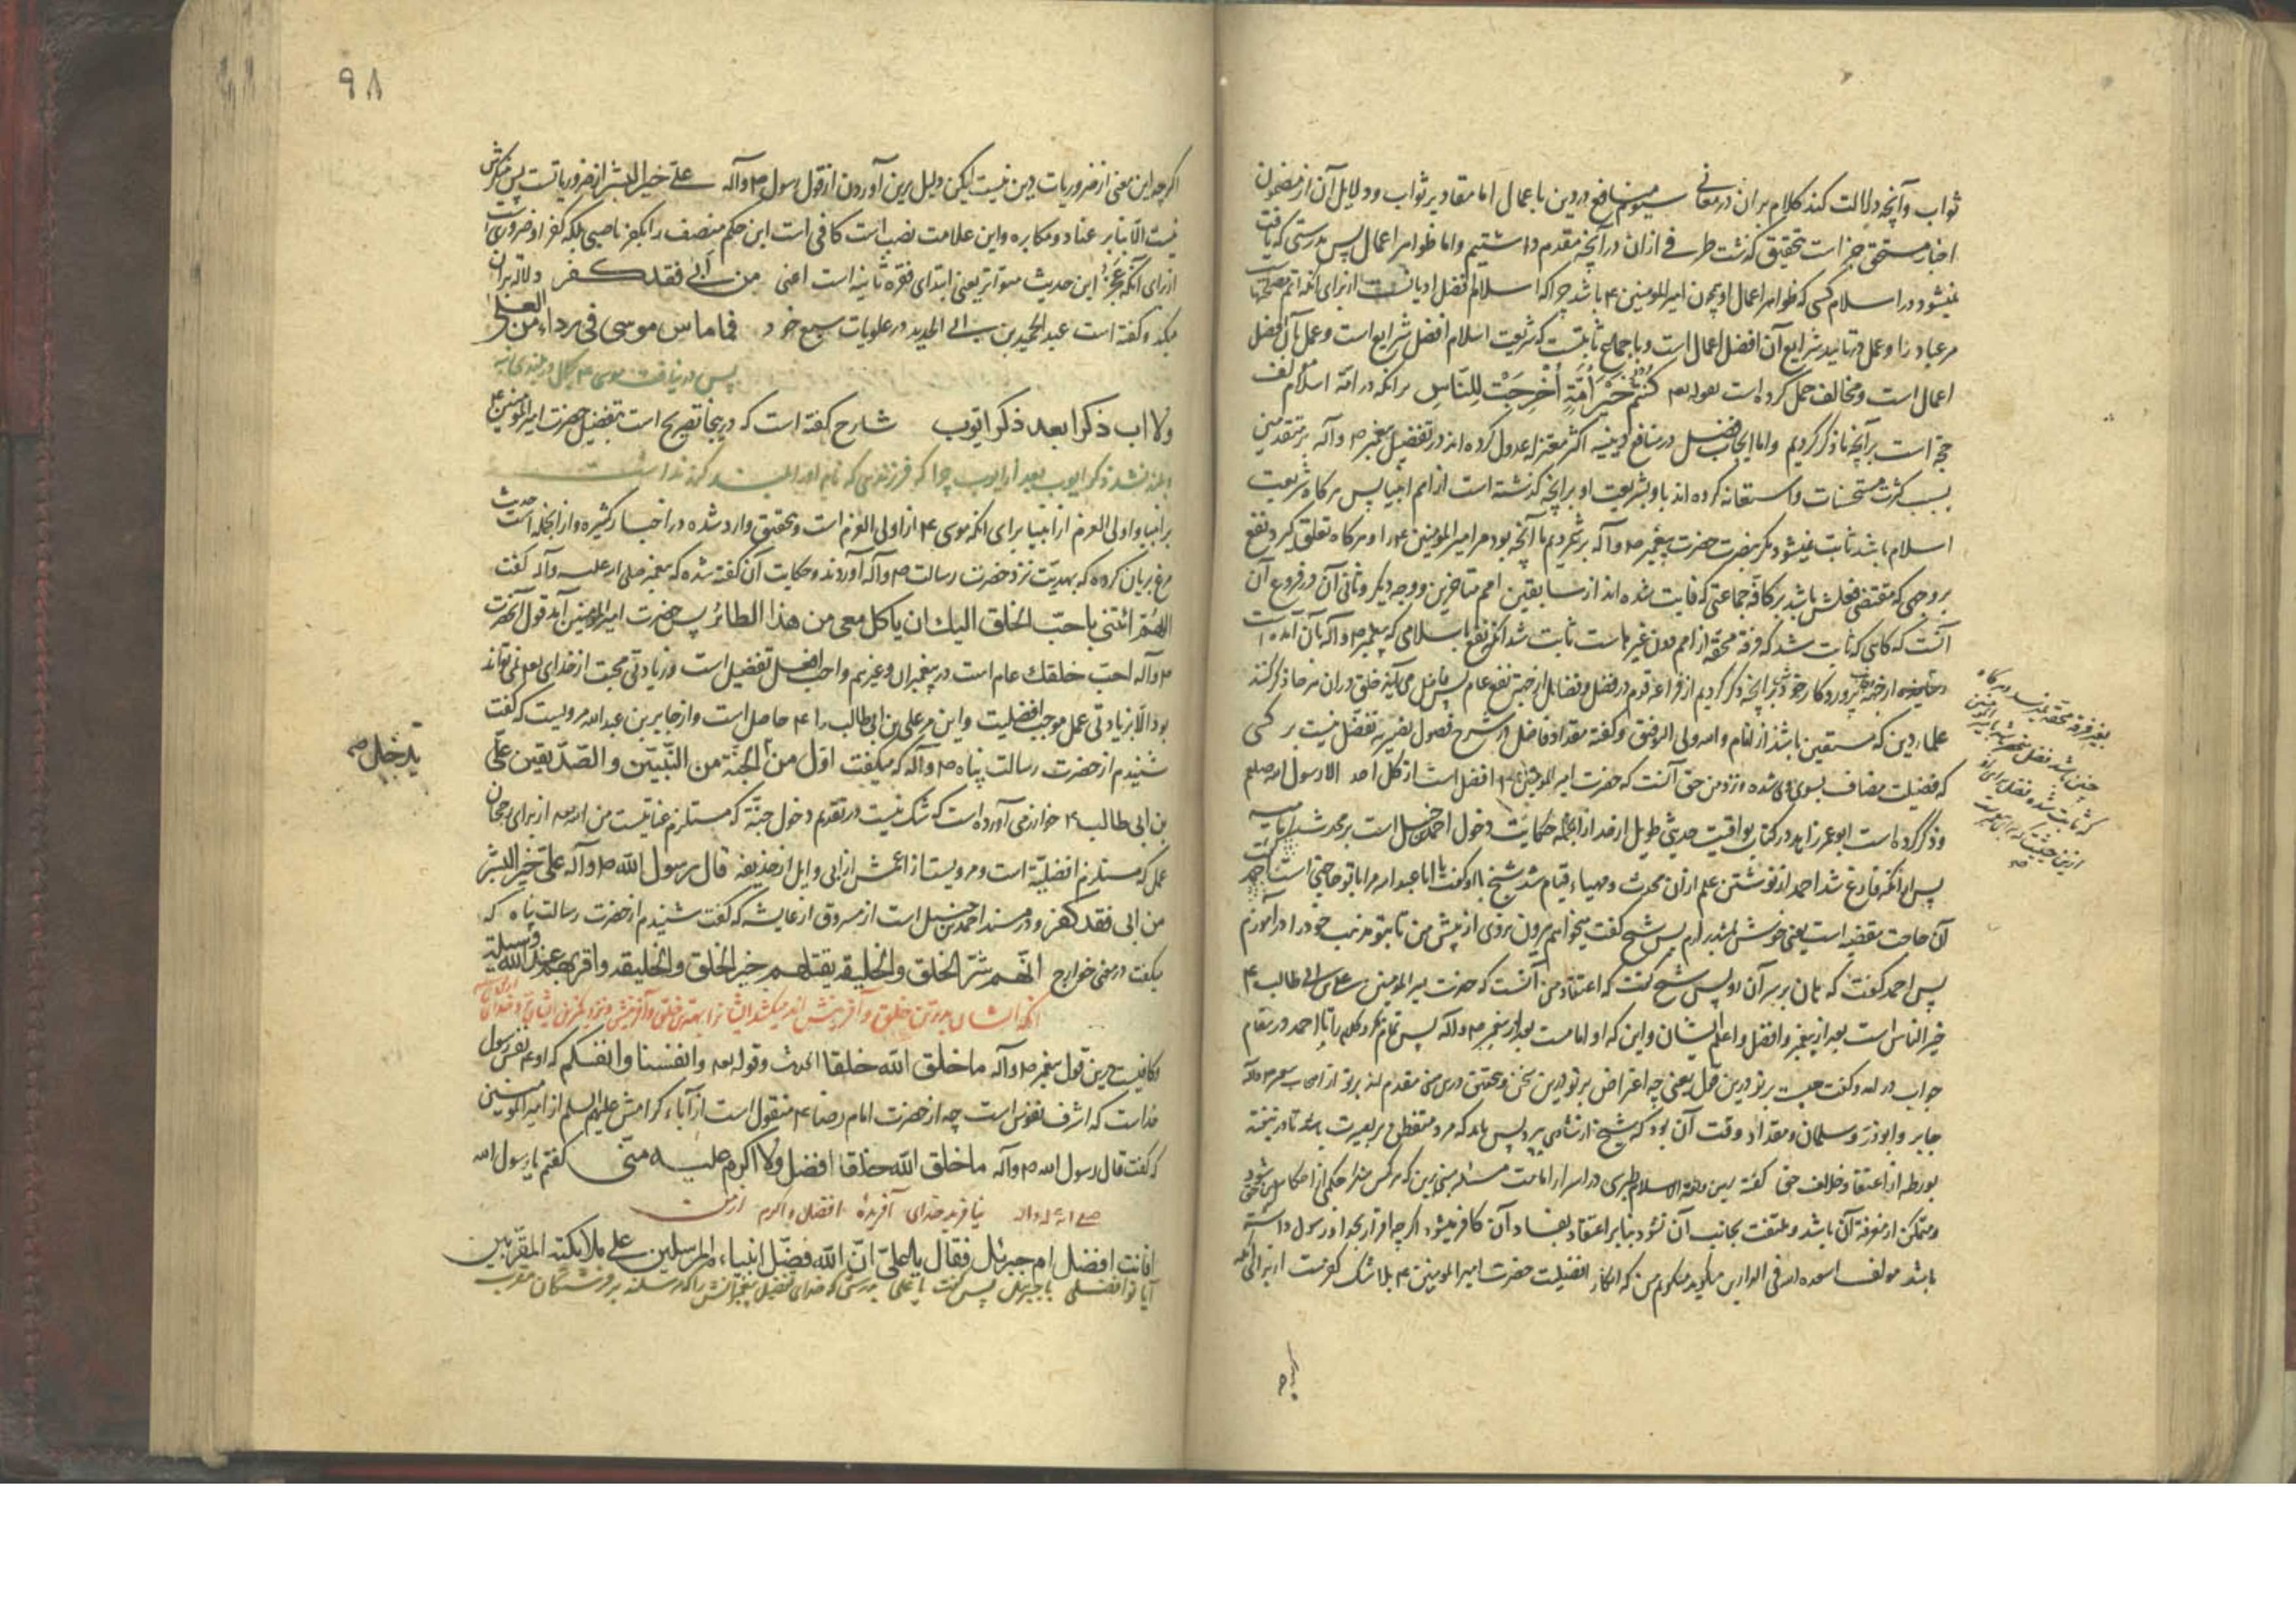 ثواب و آنچه دلالت کند کلام بران در معانی سیوم منافع در دین باعمال اما مقادیر ثواب و دلایل آن از مضمون
اخبار مستحق جز است تحقیق گذشت طرفی ازان در آنچه مقدم داشتیم واما ظواهر اعمال پس بدرستی که یافت
نمیشود در اسلام کسی که ظواهر اعمال او چون امیرالمومنین ع باشد چرا که اسلام افضل ادیانست از برای انکه اتم مصلحتها
مر عباد را و عمل در تایید شرایع آن افضل اعمال است و باجماع ثابتست که شریعت اسلام افضل شرایع است و عمل بآن افضل
اعمال است و مخالف حمل کرده است بقوله تعه کُنْتُمْ خَیْرَ أُمَّةٍ أُخْرِجَتْ لِلنَّاسِ برانکه در امّة اسلام
حجة است برآنچه ما ذکر کردیم واما ایجاب فضل در منافع دینیه اکثر معتزله عدول کرده اند در تفضیل پیغمبر ص وآله بر متقدمین
بسبب کثرت مستحسنات و استعانه کرده اند باو بشریعت او برآنچه گذشته است از امم انبیا پس هرکاه شریعت
اسلام باشد ثابت نمیشود مگر بنصرت حضرت پیغمبر ص وآله برشمردیم ما آنچه بود مر امیرالمومنین ع را و هرکاه تعلق گیرد نفع
بروجهی که مقتضی فعلش باشد بر کافّه جماعتی که فایت شده اند از سابقین امم متاخرین و وجه دیگر و ثانی آن در فروع آن
آنست که کاهی که ثابت شد که فرقه محقه از امم دون غیر ماست ثابت شد انکه نفع باسلامی که پیغمبر ص وآله بآن آمده است
از جهة پروردکار خود برآنچه ذکر کردیم از فراعنه قوم در فضل و فضایل از جهة نفع عام پس فاضل می آید خلق دران مرحا ذکر کنند
علماء دین که مستقین باشد از انام والله ولی التوفیق و کفته مقداد فاضل در شرح فصول نصیریه تفضل نیست بر کسی
که فضیلت مضاف بسوی وی شده و نزد من حق آنست که حضرت امیرالمومنین ع افضل است از کل احد الا رسول الله صلعم
و ذکر کرده است ابو عمر زاهد در کتاب یواقیت حدیثی طویل از جمله حکایت دخول احمد حنبل است بر محدث
پس از انکه فارغ شد احمد از نوشتن علم ازان محدث و مهیاء قیام شد شیخ با او کفت یا ابا عبدالله مرا با تو حاجتی است احمد کفت
آن حاجت مقضیه است یعنی خوش لمیذ برارم پس شیخ کفت میخواهم بیرون نروی از پیش من تا بتو مذهب خود را درآموزم
پس احمد کفت که بیان بربر آن رو پس شیخ کفت که اعتقاد من آنست که حضرت امیرالمومنین علی بن ابی طالب ع
خیر الناس است بعد از پیغمبر و افضل و اعلم ایشان و این که او امامست بعد از پیغمبر ص وآله پس تمام نکرد کلام را تا احمد در مقام
جواب درآمد و کفت عیبست برتو درین قول یعنی چه اعتراض برتو درین سخن و تحقیق درین معنی مقدم اند برتو از اصحاب پیغمبر ص وآله
جابر و ابوذر و سلمان و مقداد وقت آن بود که شیخ از شادی بپرد پس باید که مرد متفطن و با بصیرت باشد تا در نیفتد
بورطه از اعتقاد خلاف حق کفته امین الاسلام طبری در اسرار امامت مسئله مبنی برین که هر کس منکر حکمی از احکام
و متمکن از معرفة آن باشد و ملتفت بجانب آن نشود بنابر اعتقاد بفساد آن کافر میشود اکرچه اقرار بخدا و رسول داشته
باشد مولف اسعده الله فی الدارین میکوید میکویم من که انکار افضلیت حضرت امیرالمومنین ع بلاشک کفرست از برای آنکه
اکرچه
۹۸
اکرچه این معنی از ضروریات دین نیست لیکن دلیل برین آوردن از قول رسول ص وآله علی خیر البشر از ضروریاتست پس منکرش
نیست الّا بنابر عناد و مکابره واین علامت نصب است کافی است این حکم منصف را بکفر ناصبی بلکه کفر او ضروری است
از برای آنکه عَجُز این حدیث متواتر یعنی ابتدای فقره ثانیه است اعنی من أبی فقد کفر دلالة بران
میکند و کفته است عبد الحمید بن ابی الحدید در علویات سبع خود فما ماس موسی فی رداء من العلی
پس در نیافت موسی ع
ولا اب ذکرا بعد ذکر ایوب شارح کفته است که در ینجا تصریح است بتفضیل حضرت امیرالمومنین ع
بلند نشد ذکر ایوب بعد از ایوب چرا که فرزندی که نام او را بلند کرد نداشت
بر انبیا و اولی العزم از انبیا برای انکه موسی ع از اولی العزم است و بتحقیق وارد شده در اخبار کثیره و از انجمله است حدیث
مرغ بریان کرده که بهدیّت نزد حضرت رسالت ص وآله آوردند و حکایت آن کفته شده که پیغمبر صلی الله علیه وآله کفت
اللهم ائتنی باحبّ الخلق الیك ان یاکل معی من هذا الطائر پس حضرت امیرالمومنین آمد قول آنحضرت
ص وآله احبّ خلقك عام است در پیغمبران و غیرهم و احب افعل تفضیل است و زیادتی محبت از خدای تعه نمی تواند
بود الّا بزیادتی عمل موجب افضلیت و این مر علی بن ابی طالب را ع حاصل است و از جابر بن عبدالله مرویست که کفت
شنیدم از حضرت رسالت پناه ص وآله که میکفت اوّل من الجنّة من النّبیّین والصّدّیقین علیّ
یدخل صح
بن ابی طالب ع خوارزمی آورده است که شک نیست در تقدیم دخول جنّة که مستلزم عنایتست من الله تعه از برای رجحان
عمل که مستلزم افضلیّة است و مرویست از اعمش از ابی وایل از حذیفه قال رسول الله ص وآله علیّ خیر البشر
من ابی فقد کفر و در مسند احمد بن حنبل است از مسروق از عایشه که کفت شنیدم از حضرت رسالت پناه که
میکفت در معنی خوارج انّهم شرّ الخلق والخلیقه یقتلهم خیر الخلق والخلیقه واقربهم عند الله وسیلة
انکه ایشان بدترین خلق و آفرینش اند میکشد ایشانرا بهترین خلق و آفرینش و نزدیکترین ایشان نزد خدا
وکافیست درین قول پیغمبر ص وآله ما خلق الله خلقا الحدیث وقوله تعه وانفسنا وانفسکم که او ع نفس رسول
خداست که اشرف نفوس است چه از حضرت امام رضا ع منقول است از آباء کرامش علیهم السلم از امیرالمومنین
که کفت قال رسول الله ص وآله ما خلق الله خلقا افضل ولا اکرم علیه منّی کفتم یا رسول الله
صلی الله علیه واله نیافرید خدای آفریده افضل و اکرم از من
افانت افضل ام جبرئیل فقال یا علیّ انّ الله فضّل انبیاء المرسلین علی ملائکته المقرّبین
آیا تو افضلی یا جبریل پس کفت یا علی بدرستی که خدای تفضیل پیغمبرانش را که مرسلند بر فرشتکان مقرب